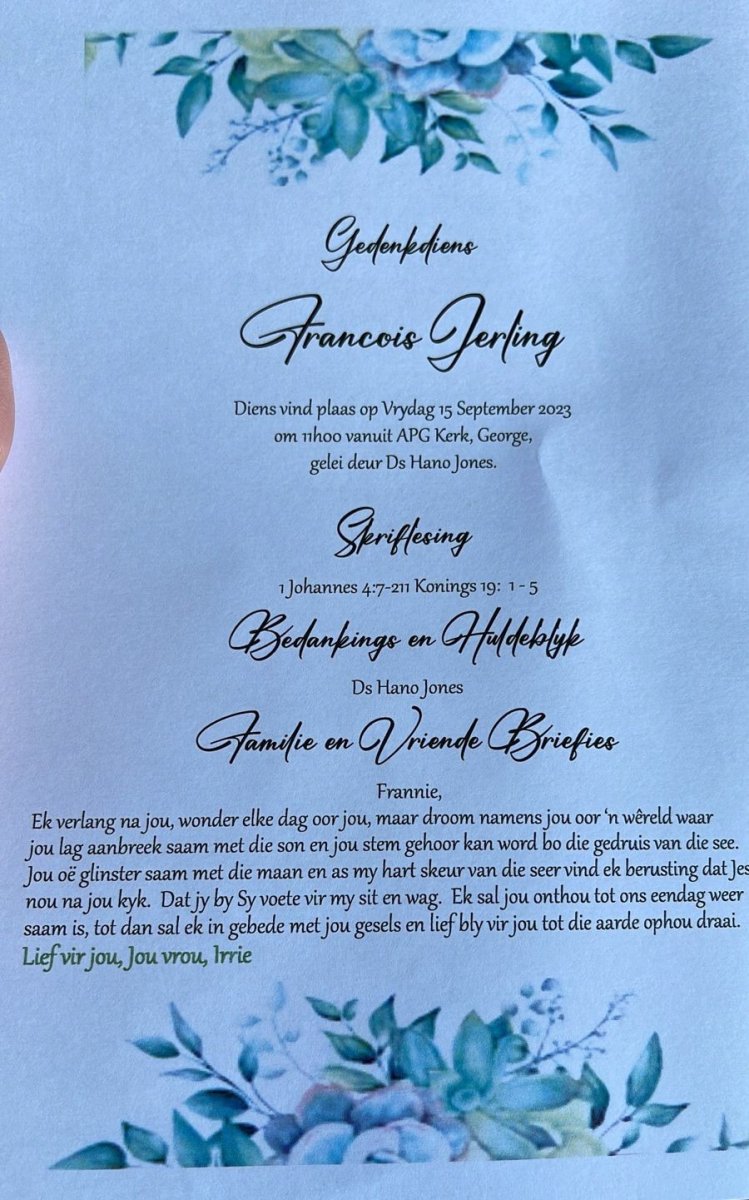 Gedenkdiens
Francois Jerling
Diens vind plaas op Vrydag 15 September 2023
om 11h00 vanuit APG Kerk, George,
gelei deur Ds Hano Jones.
Skriflesing
1 Johannes 4:7-211 Konings 19: 1 - 5
Bedankings en Huldeblyk
Ds Hano Jones
Familie en Vriende Briefies
Frannie,
Ek verlang na jou, wonder elke dag oor jou, maar droom namens jou oor ‘n wêreld waar
jou lag aanbreek saam met die son en jou stem gehoor kan word bo die gedruis van die see.
Jou oë glinster saam met die maan en as my hart skeur van die seer vind ek berusting dat Jes
nou na jou kyk. Dat jy by Sy voete vir my sit en wag. Ek sal jou onthou tot ons eendag weer
saam is, tot dan sal ek in gebede met jou gesels en lief bly vir jou tot die aarde ophou draai.
Lief vir jou, Jou vrou, Irrie